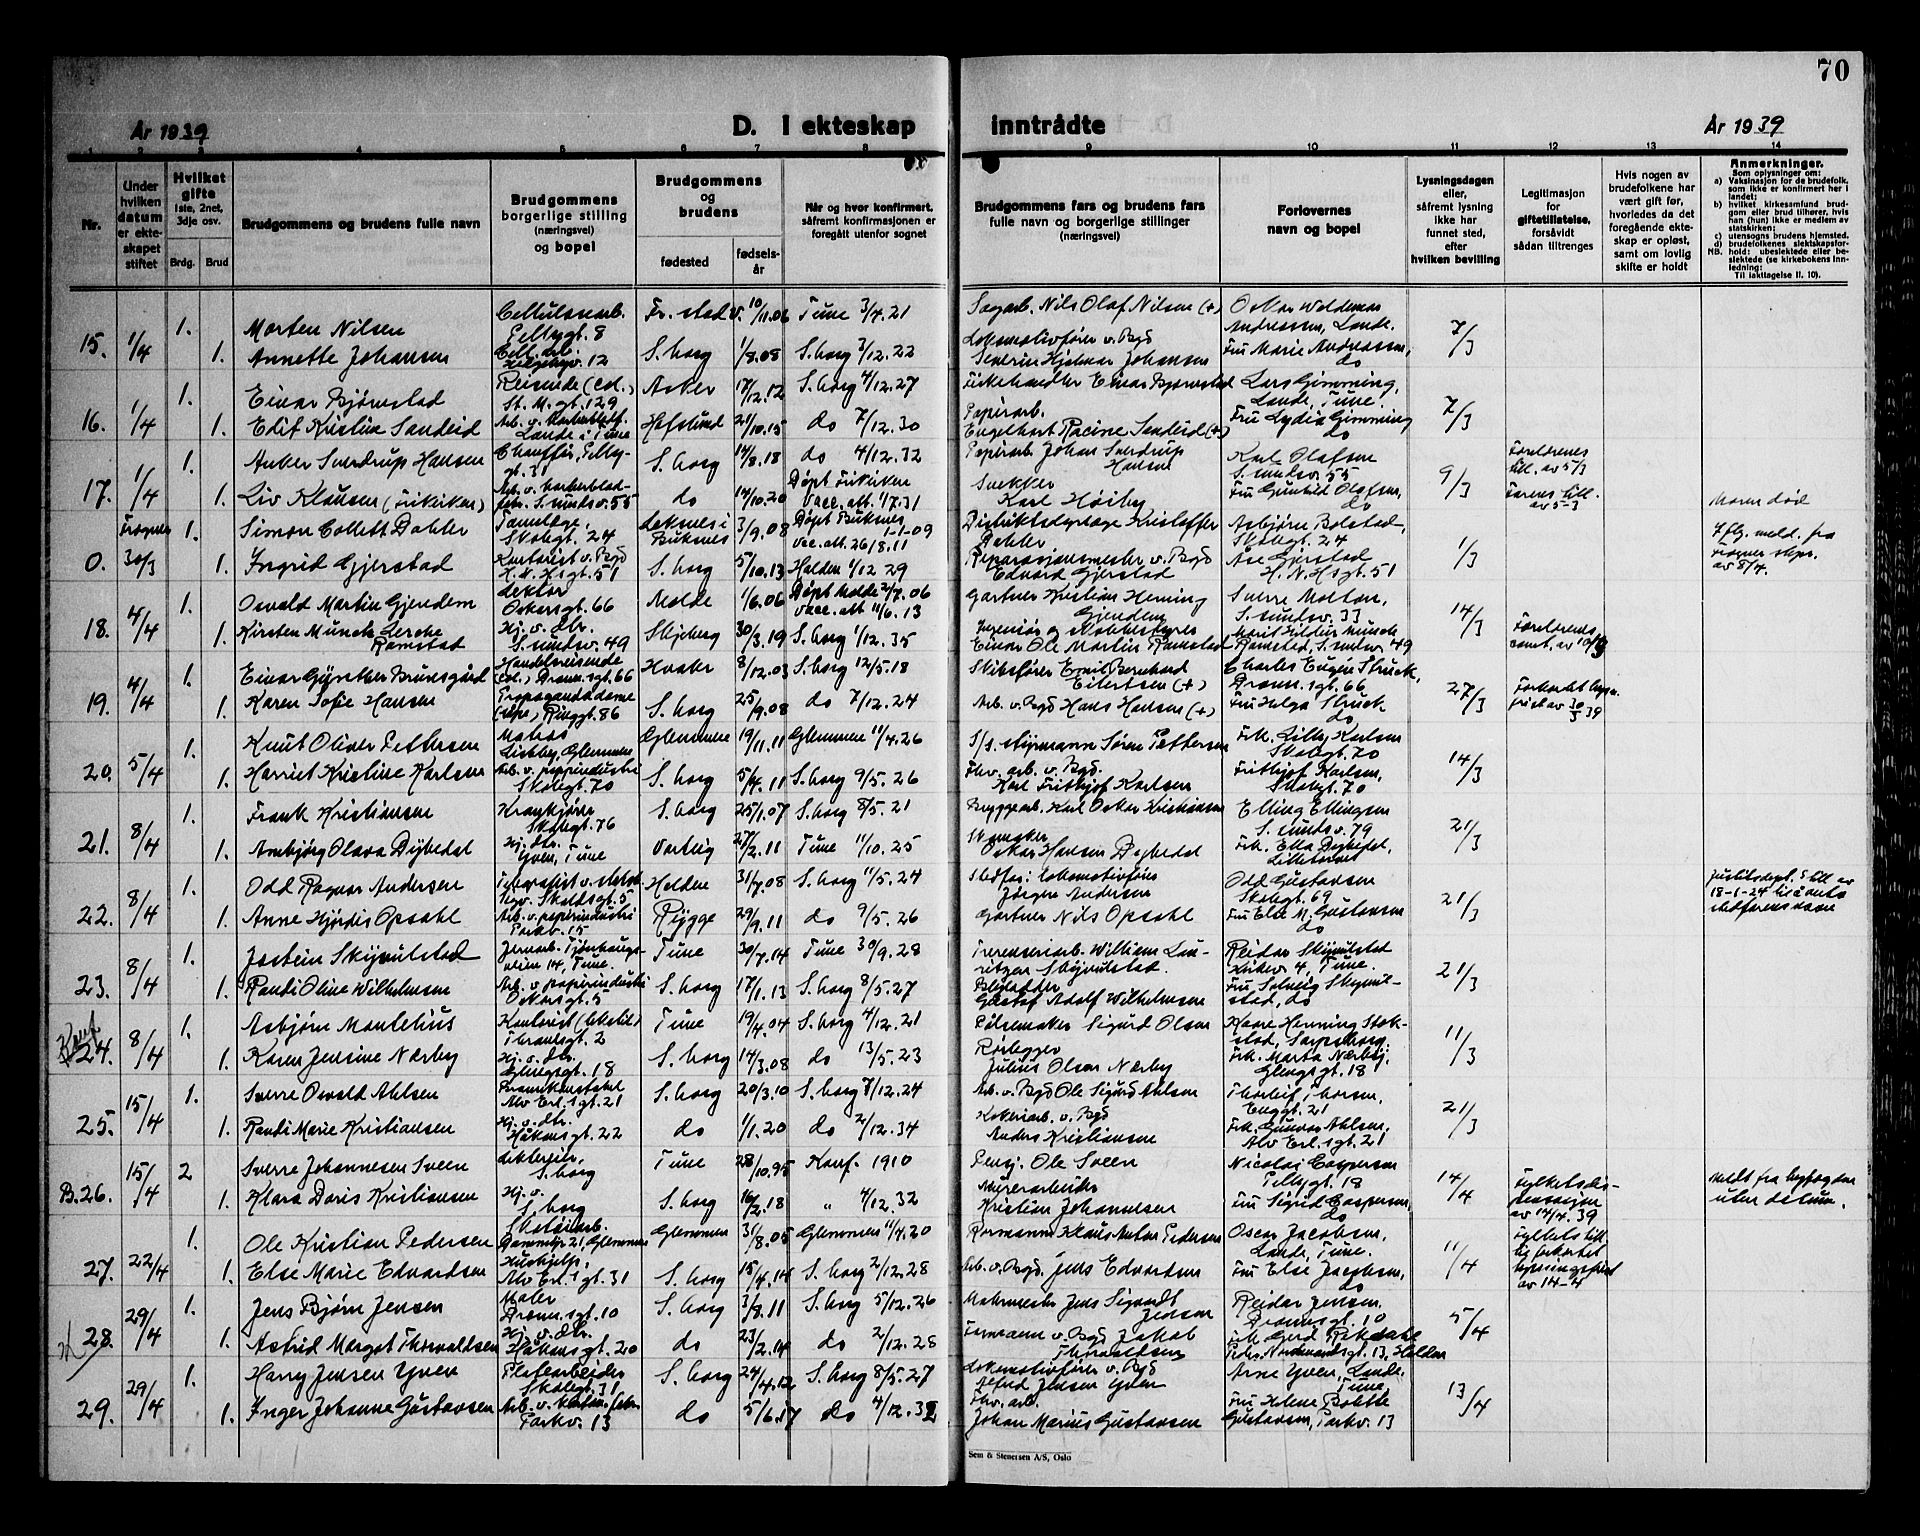 70
År 1939
D. I ekteskap inntrådte
År 1939
1 2 3 4 5 6 7 8 9 10 11 12 13 14
Nr.
Under hvilken datum er ekteskapet stiftet
Hvilket gifte
1ste, 2net, 3dje osv.
Brdg. Brud
Brudgommens og brudens fulle navn
Brudgommens borgerlige stilling (næringsvei) og bopel
Brudgommens og brudens
fødested
fødselsår
Når og hvor konfirmert, såfremt konfirmasjonen er foregått utenfor sognet
Brudgommens fars og brudens fars fulle navn og borgerlige stillinger (næringsvei)
Forlovernes navn og bopel
Lysningsdagen eller, såfremt lysning ikke har funnet sted, efter hvilken bevilling
Legitimasjon for giftetillatelse, forsåvidt sådan tiltrenges
Hvis nogen av brudefolkene har vært gift før, hvorledes da det foregående ekteskap er opløst, samt om lovlig skifte er holdt
Anmerkninger.
Som oplysninger om:
a) Vaksinasjon for de brudefolk. som ikke er konfirmert her i landet;
b) hvilket kirkesamfund brudgom eller brud tilhører, hvis han (hun) ikke er medlem av statskirken;
c) utensogns brudens hjemsted.
d) brudefolkenes slektskapsforhold: ubeslektede eller beslektede (se kirkebokens innledning:
NB. Til iakttagelse II. 10).
15. 1/4 1. Morten Nilsen Cellulosearb. Pellygt. 8 Fr.stad v. 10/11.06 Tune 3/4.21 Sagarb. Nils Olaf Nilsen (+) Oskar Woldemar Andreassen, Lande. 7/3
1. Annette Johansen S.borg 1/8.08 S.borg 3/12.22 Lokomotivfører v. Bgd Severin Hjalmar Johansen Fru Marie Andreassen, do
16. 1/4 1. Einar Bjørnstad Reisende (col.) St. M. gt. 129 Asker 17/12.12 S.borg 4/12.27 Fiskehandler Einar Bjørnstad Lars Gimming, Lande, Tune. 7/3
1. Edit Kristine Sandeid Lande i Tune Hafslund 21/10.15 do 7/12.30 Papirarb. Engelhart Racine Sandeid (+) Fru Lydia Gimming do
17. 1/4 1. Anker Sverdrup Hansen Chauffør, Pellygt. 31 S.borg 14/8.18 do 4/12.32 Papirarb. Johan Sverdrup Hansen Karl Olafsen S.sundsv. 55 9/3 Foreldrenes till. av 5/3
1. Liv Klausen (Frikirken) Arb. v. barberbladfabr. S.sundsv. 55 do 14/10.20 Døpt Frikirken Vacc.att. 1/7.31 Snekker Karl Høiby Fru Gunhild Olafsen, do Farens till. av 5-3 Moren død
0. Frogner 30/3 1. Simon Collett Dahler Tannlæge, Skolegt. 24 Leknes i Buksnes 3/9.08 Døpt Buksnes 1-1-09 Vac.att. 26/8.11 Distriktsdyrlæge Kristoffer Dahler Asbjørn Bolstad, Skolegt. 24 1/3 Iflg. meld. fra Frogner sogn. av 8/4.
1. Ingrid Gjerstad Kontorist v. Bgd H. N. Hsgt. 51 S.borg 5/10.13 Halden 1/12 29 Reparasjonsmester v. Bgd Edvard Gjerstad Åse Gjerstad H. N. Hsgt. 51
18. 4/4 1. Osvald Martin Gjendem Lektor Oskarsgt. 66 Molde 1/6.06 Døpt Molde 2/7.06 Vacc.att 11/6.13 Gartner Kristian Heming Gjendem Sverre Moltan, S.sundsv. 33 14/3
1. Kirsten Munch Lerche Ramstad Hj. v. dtr. S.sundsv. 49 Skjeberg 30/3.19 S.borg 1/12.35 Einar Ole Martin Ramstad Marit Hildur Munch Ramstad, S.sundsv. 49
19. 4/4 1. Einar Günther Brunsgård Handelsreisende (col.) Dronn.sgt. 66 Hvaler 8/12.03 S.borg 12/5.18 Skibsfører Emil Bernhard Eilertsen (+) Charles Eugen Struck, Dronn.sgt. 66 27/3
1. Karen Sofie Hansen Propagandadame Ringgt. 86 S.borg 25/9.08 do 7/12.24 Arb. v. Bgd Hans Hansen (+) Fru Helga Struck do
20. 5/4 1. Knut Oliver Pettersen Matros Lisleby, Glemmen Glemmen 19/11.11 Glemmen 11/4.26 S/s. styrmann Søren Pettersen Frk. Lilly Karlsen Skolegt. 70 14/3
1. Harriet Kristine Karlsen Arb. v. papirindustri Skolegt. 70 S.borg 5/4.11 S.borg 9/5.26 Fhv. arb. v. Bgd. Karl Frithjof Karlsen Frithjof Karlsen, Skolegt. 70
21. 8/4 1. Frank Kristiansen Krankjører Skolegt. 76 S.borg 25/1.07 S.borg 8/5.21 Bryggearb. Karl Oskar Kristiansen Elling Ellingsen S.sundsv. 79 21/3
1. Ambjørg Olava Dybedal Hj. dtr. Yven, Tune Varteig 27/2.11 Tune 11/10.25 Skomaker Oskar Hansen Dybedal Frk. Ella Dybedal, Lilletorvet
22. 8/4 1. Odd Ragnar Andersen Halden 31/7.08 S.borg 11/5.24 Stedfar: Lokomotivfører Jørgen Andersen Odd Gustavsen Skolegt. 69 21/3
1. Anne Hjørdis Opsahl Arb. v. papirindustri Parkv. 15 Rygge 29/9.11 do 9/5.26 Gartner Nils Opsahl Fru Else M. Gustavsen do
23. 8/4 1. Jostein Skjeulstad Tune 30/7.14 Tune 30/9.28 William Lauritzen Skjeulstad. Reidar Skjeulstad 4, Tune. 21/3
1. Randi Oline Wilhelmsen Arb. v. papirindustri Oskarsgt. 5 S.borg 17/1.13 S.borg 8/5.27 Gustaf Adolf Wilhelmsen Fru Solveig Skjeulstad, do
Konf
24. 8/4 1. Asbjørn Montelius Kontorist (tekstil) Thranesgt. 2 Tune 19/4.04 S.borg 4/12.21 Pølsemaker Sigurd Olsen Kaare Henning Stokstad, Sarpsborg. 11/3
1. Karen Jensine Nærby Hj. v. dtr. Glengsgt. 18 S.borg 14/3.08 do 13/5.23 Rørlegger Julius Olsen Nærby Frk. Marta Nærby, Glengsgt. 18
25. 15/4 1. Sverre Osvald Ahlsen Brannkonstabel Alv Erl.sgt. 21 S.borg 20/3.10 S.borg 7/12.24 Arb. v. Bgd Ole Sigurd Ahlsen Thorleif Thorsen, Enggt. 21 21/3
1. Randi Marie Kristiansen Hj. v. dtr. Håkonsgt. 22 do 1/1.20 do 2/12.34 Kokeriarb. v. Bgd Anders Kristiansen Frk. Gunvor Ahlsen, Alv Erl.sgt. 21
B.26. 15/4 2 Sverre Johannesen Sveen S.borg Tune 28/10.95 Konf. 1910 Pensj. Ole Sveen Nicolai Caspersen Pellygt. 18 14/4 Fylkets dispensasjon av 14/4.39 Meldt fra byfogden uten datum.
1. Klara Doris Kristiansen Hj. v. S.borg S.borg 16/2.18 " 4/12.32 Murerarbeider Kristian Johannesen Fru Sigrid Caspersen, do
27. 22/4 1. Ole Kristian Pedersen Skotøiarb. Glemmen 31/8.05 Glemmen 11/4.20 Formann Klaus Anton Pedersen Oscar Jacobsen, Lande, Tune. 11/4 Fylkets till. til forkortet lysningsfrist av 14-4
1. Else Marie Edvardsen Hushjelp, Alv Erl.sgt. 31 S.borg 15/4.14 S.borg 2/12.28 Arb. v. Bgd. Jens Edvardsen Fru Else Jacobsen, do
28. 29/4 1. Jens Bjørn Jensen Maler Dronn.sgt. 10 S.borg 3/8.11 S.borg 5/12.26 Malermester Jens Sigvardt Jensen Reidar Jensen, Dronn.sgt. 10 5/4
1. Astrid Margot Thorvaldsen Hj. v. dtr. Håkonsgt. 20 do 23/2.14 do 2/12.28 Formann v. Bgd Jakob Thorvaldsen Frk. Gerd Rikdahl Peder Normannsgt. 13, Halden
29. 29/4 1. Harry Jensen Yven Platearbeider Skolegt. 31 S.borg 24/4.12 S.borg 8/5.27 Lokomotivfører v. Bgd Alfred Jensen Yven Arne Yven, Lande, Tune, 13/4
1. Inger Johanne Gustavsen Parkv. 13 do 5/6.17 do 4/12.32 Fhv. arb. Johan Marius Gustavsen Fru Helene Bolette Gustavsen, Parkv. 13
Sem & Stenersen A/S, Oslo